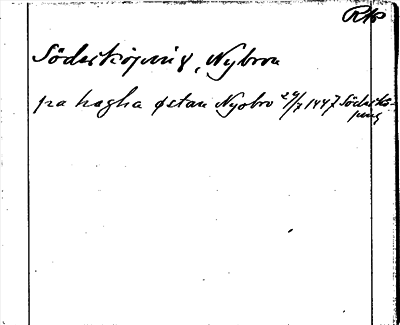 RAp
Söderköping, Nybron
pa hagha østan Nyobro 29/7 1447 Söderkö-
ping